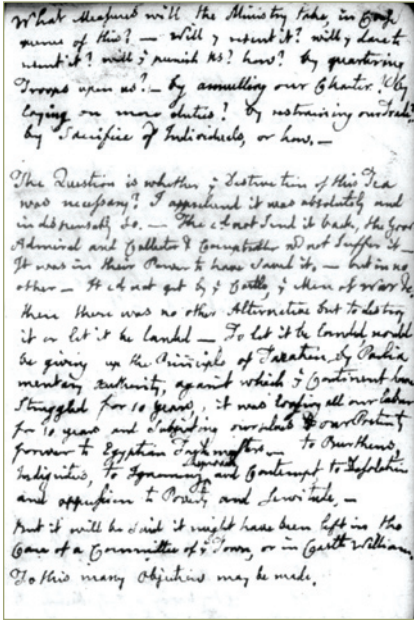 What Measures will the Ministry take, in Conse
quence of this? — Will y resent it? will y dare to
resent it? will y punish Us? how? by quartering
Troops upon us? — by annulling our Charter? by
laying on more duties? by restraining our Trade?
by Sacrifice of Individuals, or how. —
The Question is whether y Destruction of this Tea
was necessary? I apprehend it was absolutely and
indispensably so. — They cd not send it back, the Govr
Admiral and Collector & Comptroller wd not suffer it —
It was in their Power to have saved it, — but in no
other — It cd not get by y Castle, y Men of War &c
then there was no other Alternative but to destroy
it or let it be landed — To let it be landed would
be giving up the Principle of Taxation by Parlia
mentary Authority, against which y Continent have
Struggled for 10 years, it was loosing all our labour
for 10 years and subjecting ourselves & our Posterity
forever to Egyptian Taskmasters — to Burthens,
Indignities, to Ignominy, and Contempt to Desolation
and oppression to Poverty and Servitude. —
But it will be said it might have been left in the
Care of a Committee of y Town, or in Castle William.
To this many Objections may be made.